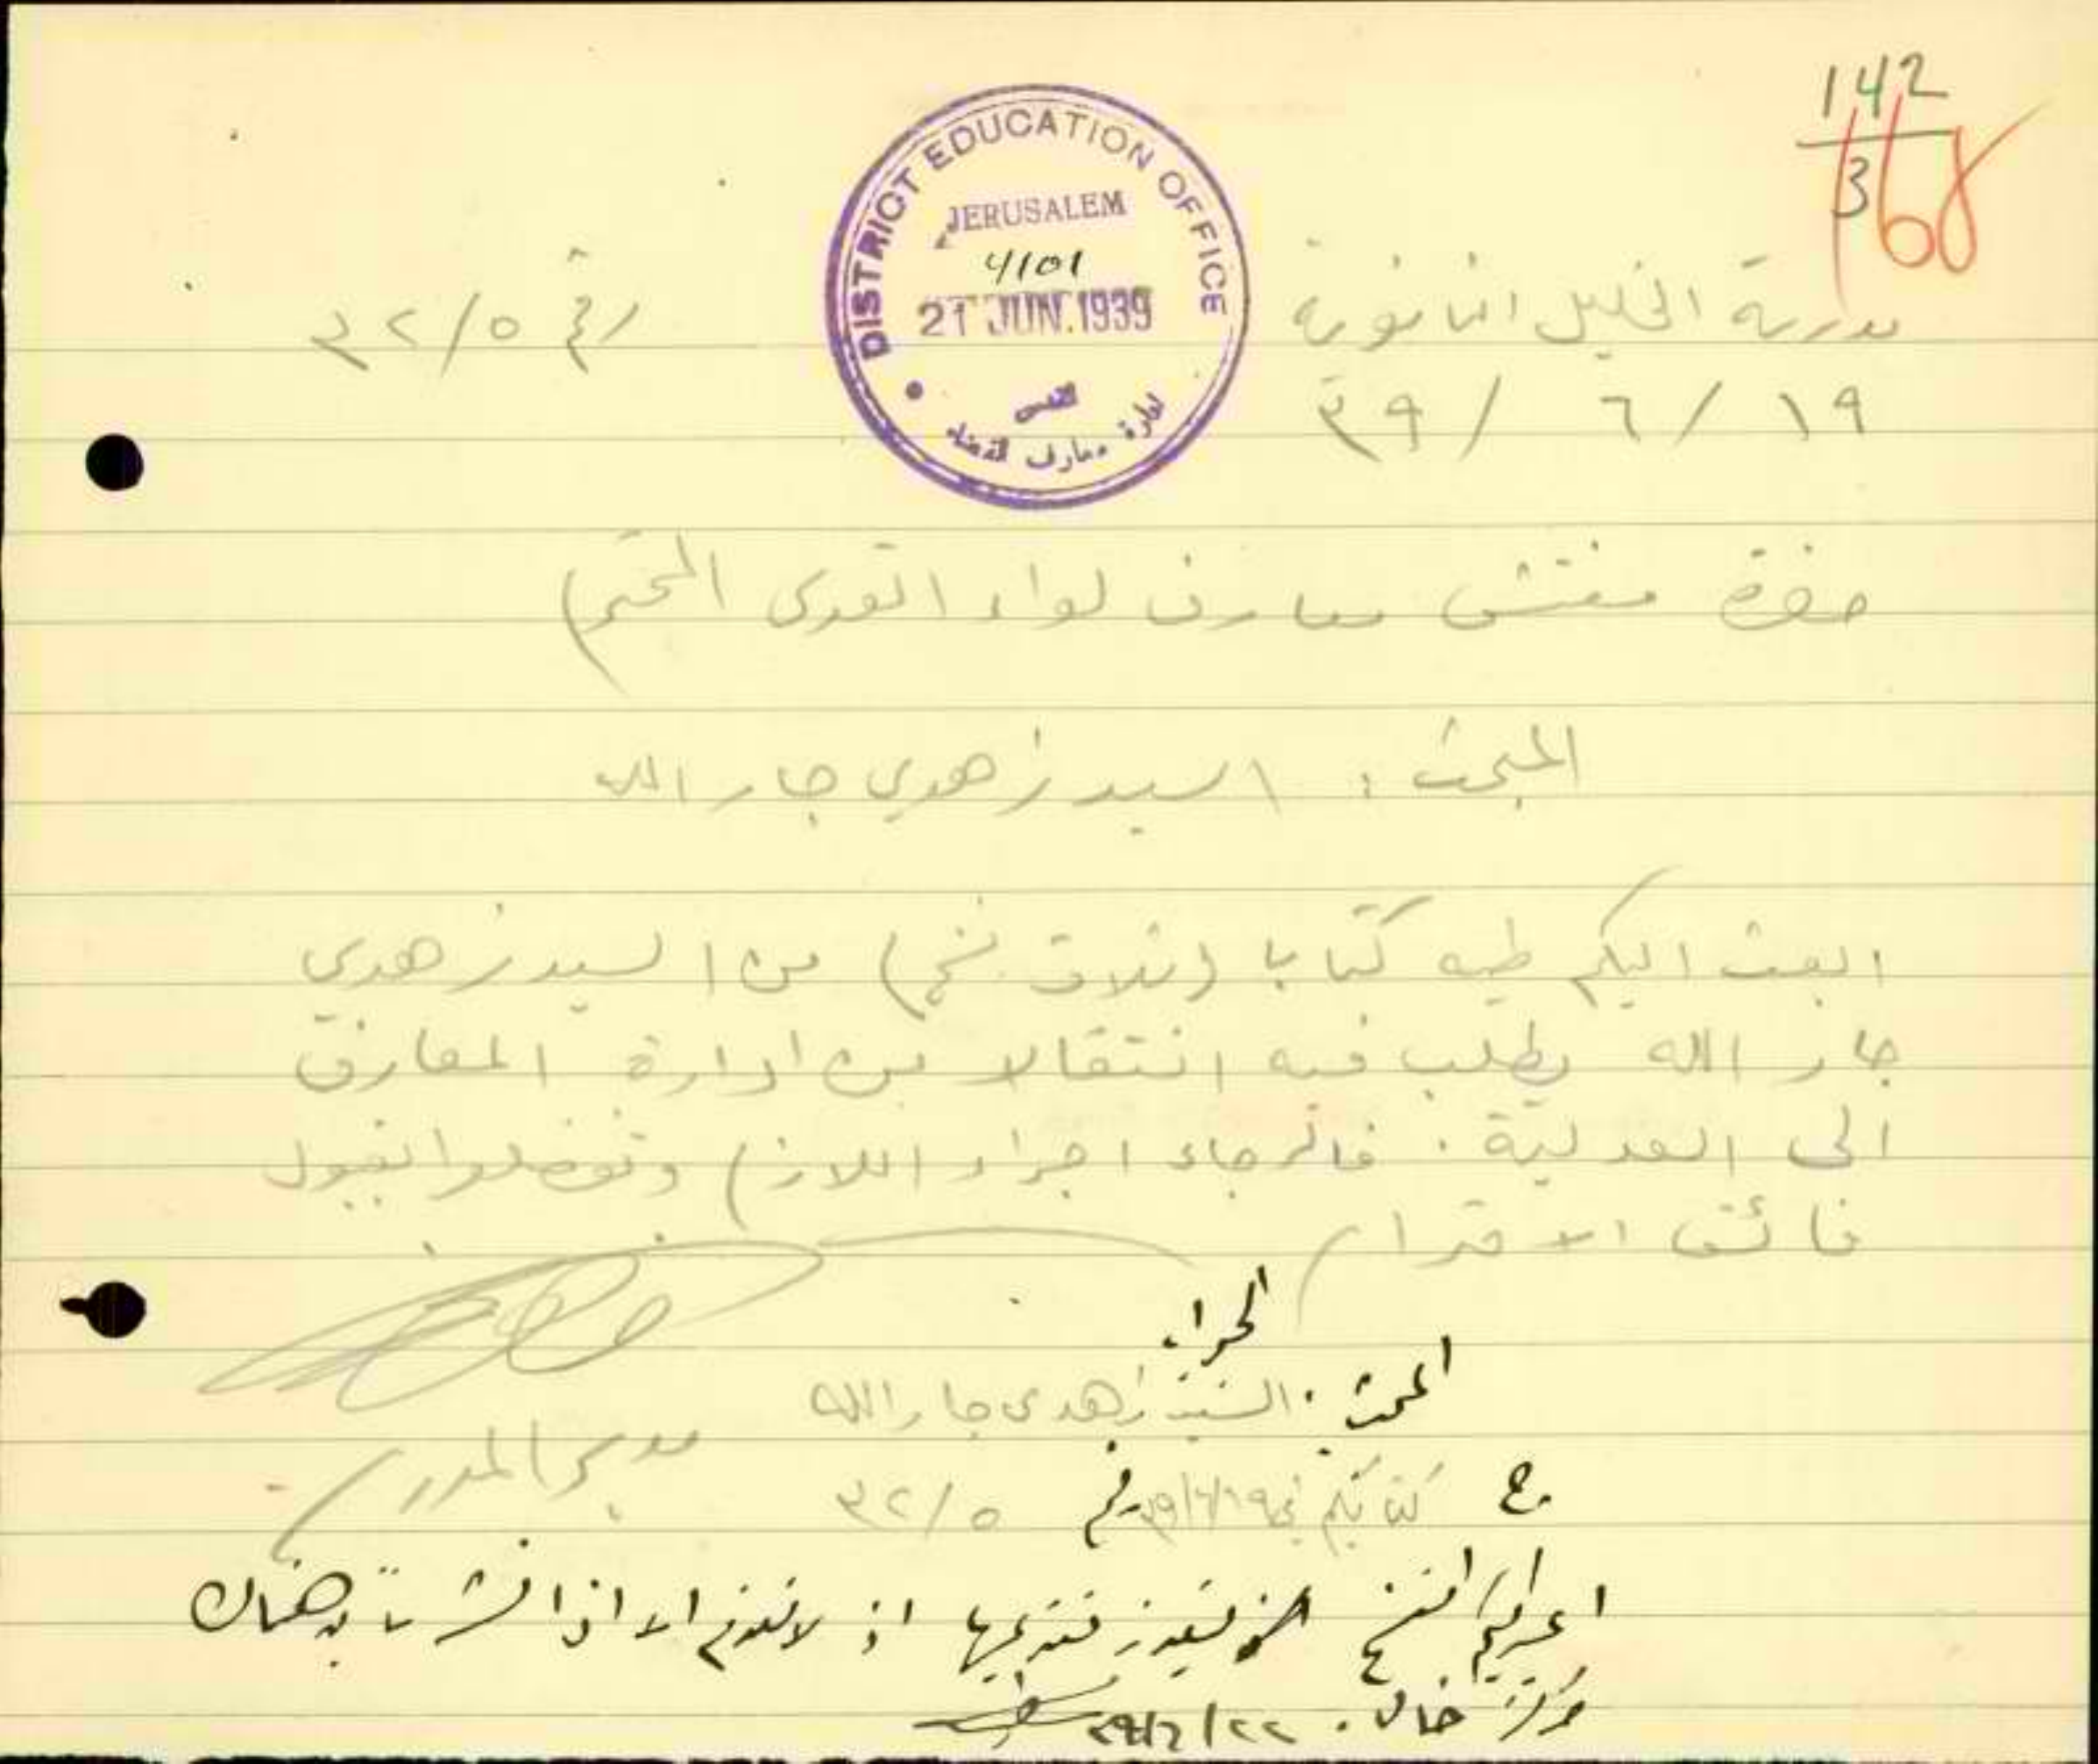 142
3
168
DISTRICT EDUCATION OFFICE
JERUSALEM
4101
21 JUN. 1939
القدس
ادارة معارف القضاء
مدرسة الخليل الثانوية
رقم ٣٢/٥
١٩ / ٦ / ٣٩
حضرة مفتش معارف لواء القدس المحترم
المبحث : السيد زهدي جار الله
ابعث اليكم طيه كتابا (ثلاث نسخ) من السيد زهدي
جار الله يطلب فيه انتقالا من ادارة المعارف
الى العدلية . فالرجاء اجراء اللازم وتفضلوا بقبول
فائق الاحترام
مدير المدرسة
المبحث : السيد زهدي جار الله
كتابكم في ٣٩/٦/١٩ رقم ٣٢/٥
اعيد اليكم النسخ اذ لا تقدم الا اذا هناك
مركز خال . ٣٩/٦/٢٢